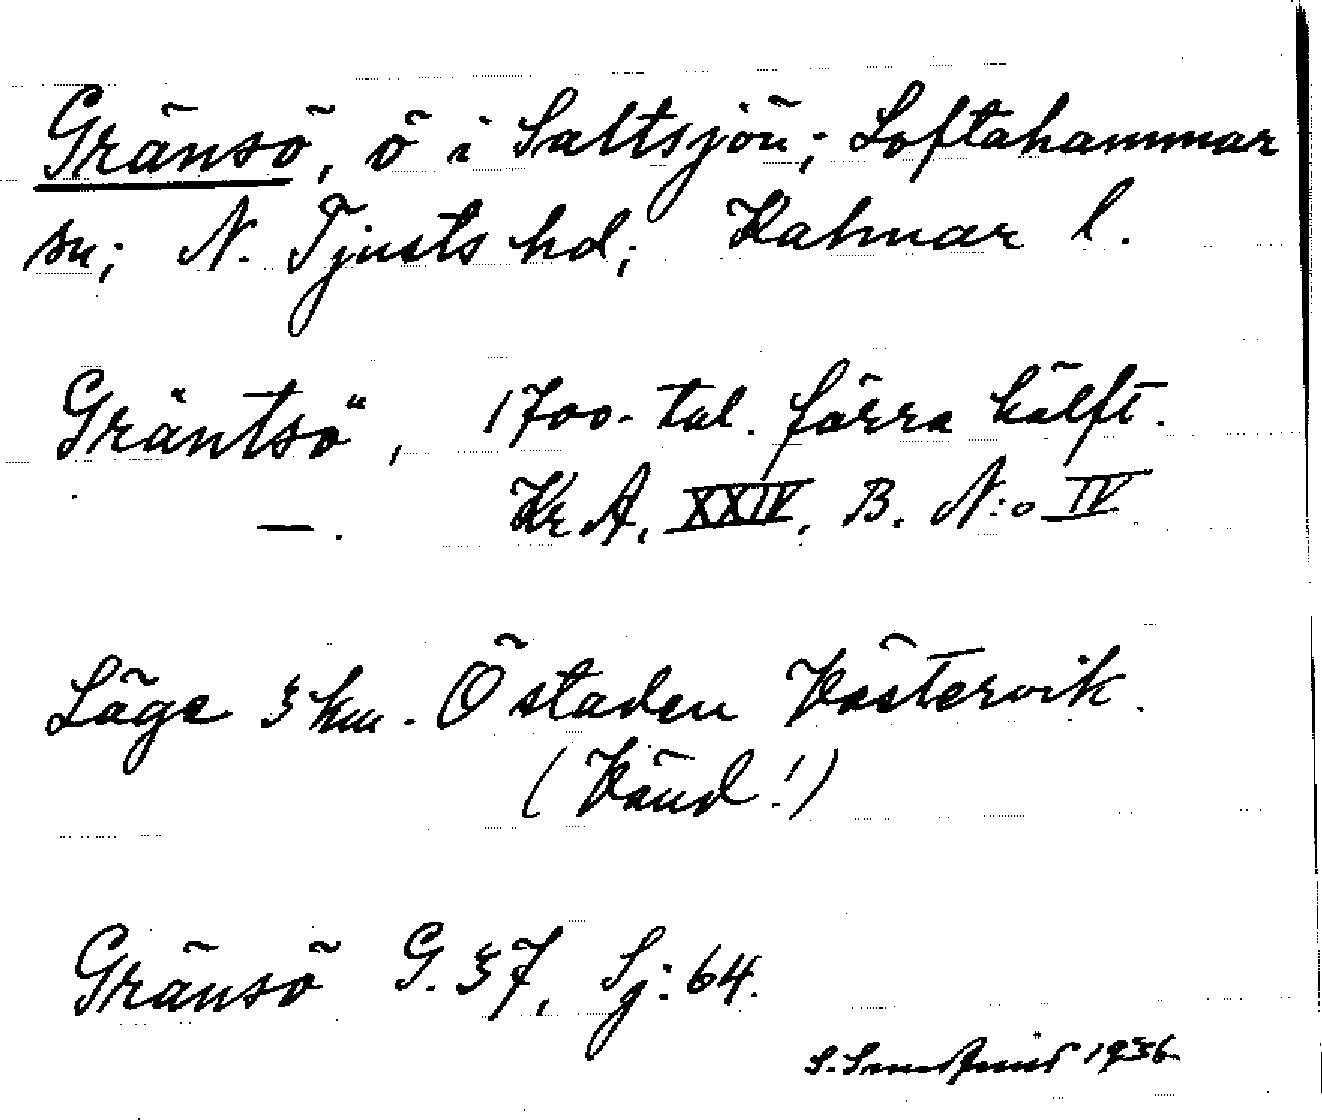 Gränsö, ö i Saltsjön; Loftahammar
sn; N. Tjusts hd; Kalmar l.
Gräntsö, 1700-tal. förra hälft.
—. Kr A. XXIV. B. N:o IV
Läge 5 km. Ö staden Västervik.
(Känd!)
Gränsö G. 57, Sj: 64.
1936